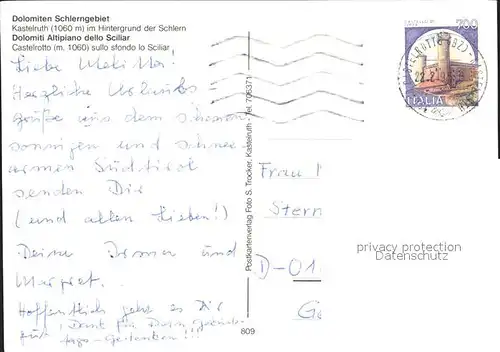 Dolomiten Schlerngebiet
Kastelruth (1060 m) im Hintergrund der Schlern
Dolomiti Altipiano dello Sciliar
Castelrotto (m. 1060) sullo sfondo lo Sciliar
Liebe
Herzliche Urlaubs-
grüße aus dem schönen
sonnigen und schnee-
armen Südtirol
senden Dir
(und allen Lieben!)
Deine Irmen und
Margret.
Hoffentlich geht es Dir
gut! Dank für Dein
Gedanken!!!
Postkartenverlag Foto S. Trocker, Kastelruth - Tel. 706371
809
700
ITALIA
Frau
Stern
D-01
G
privacy protection
Datenschutz